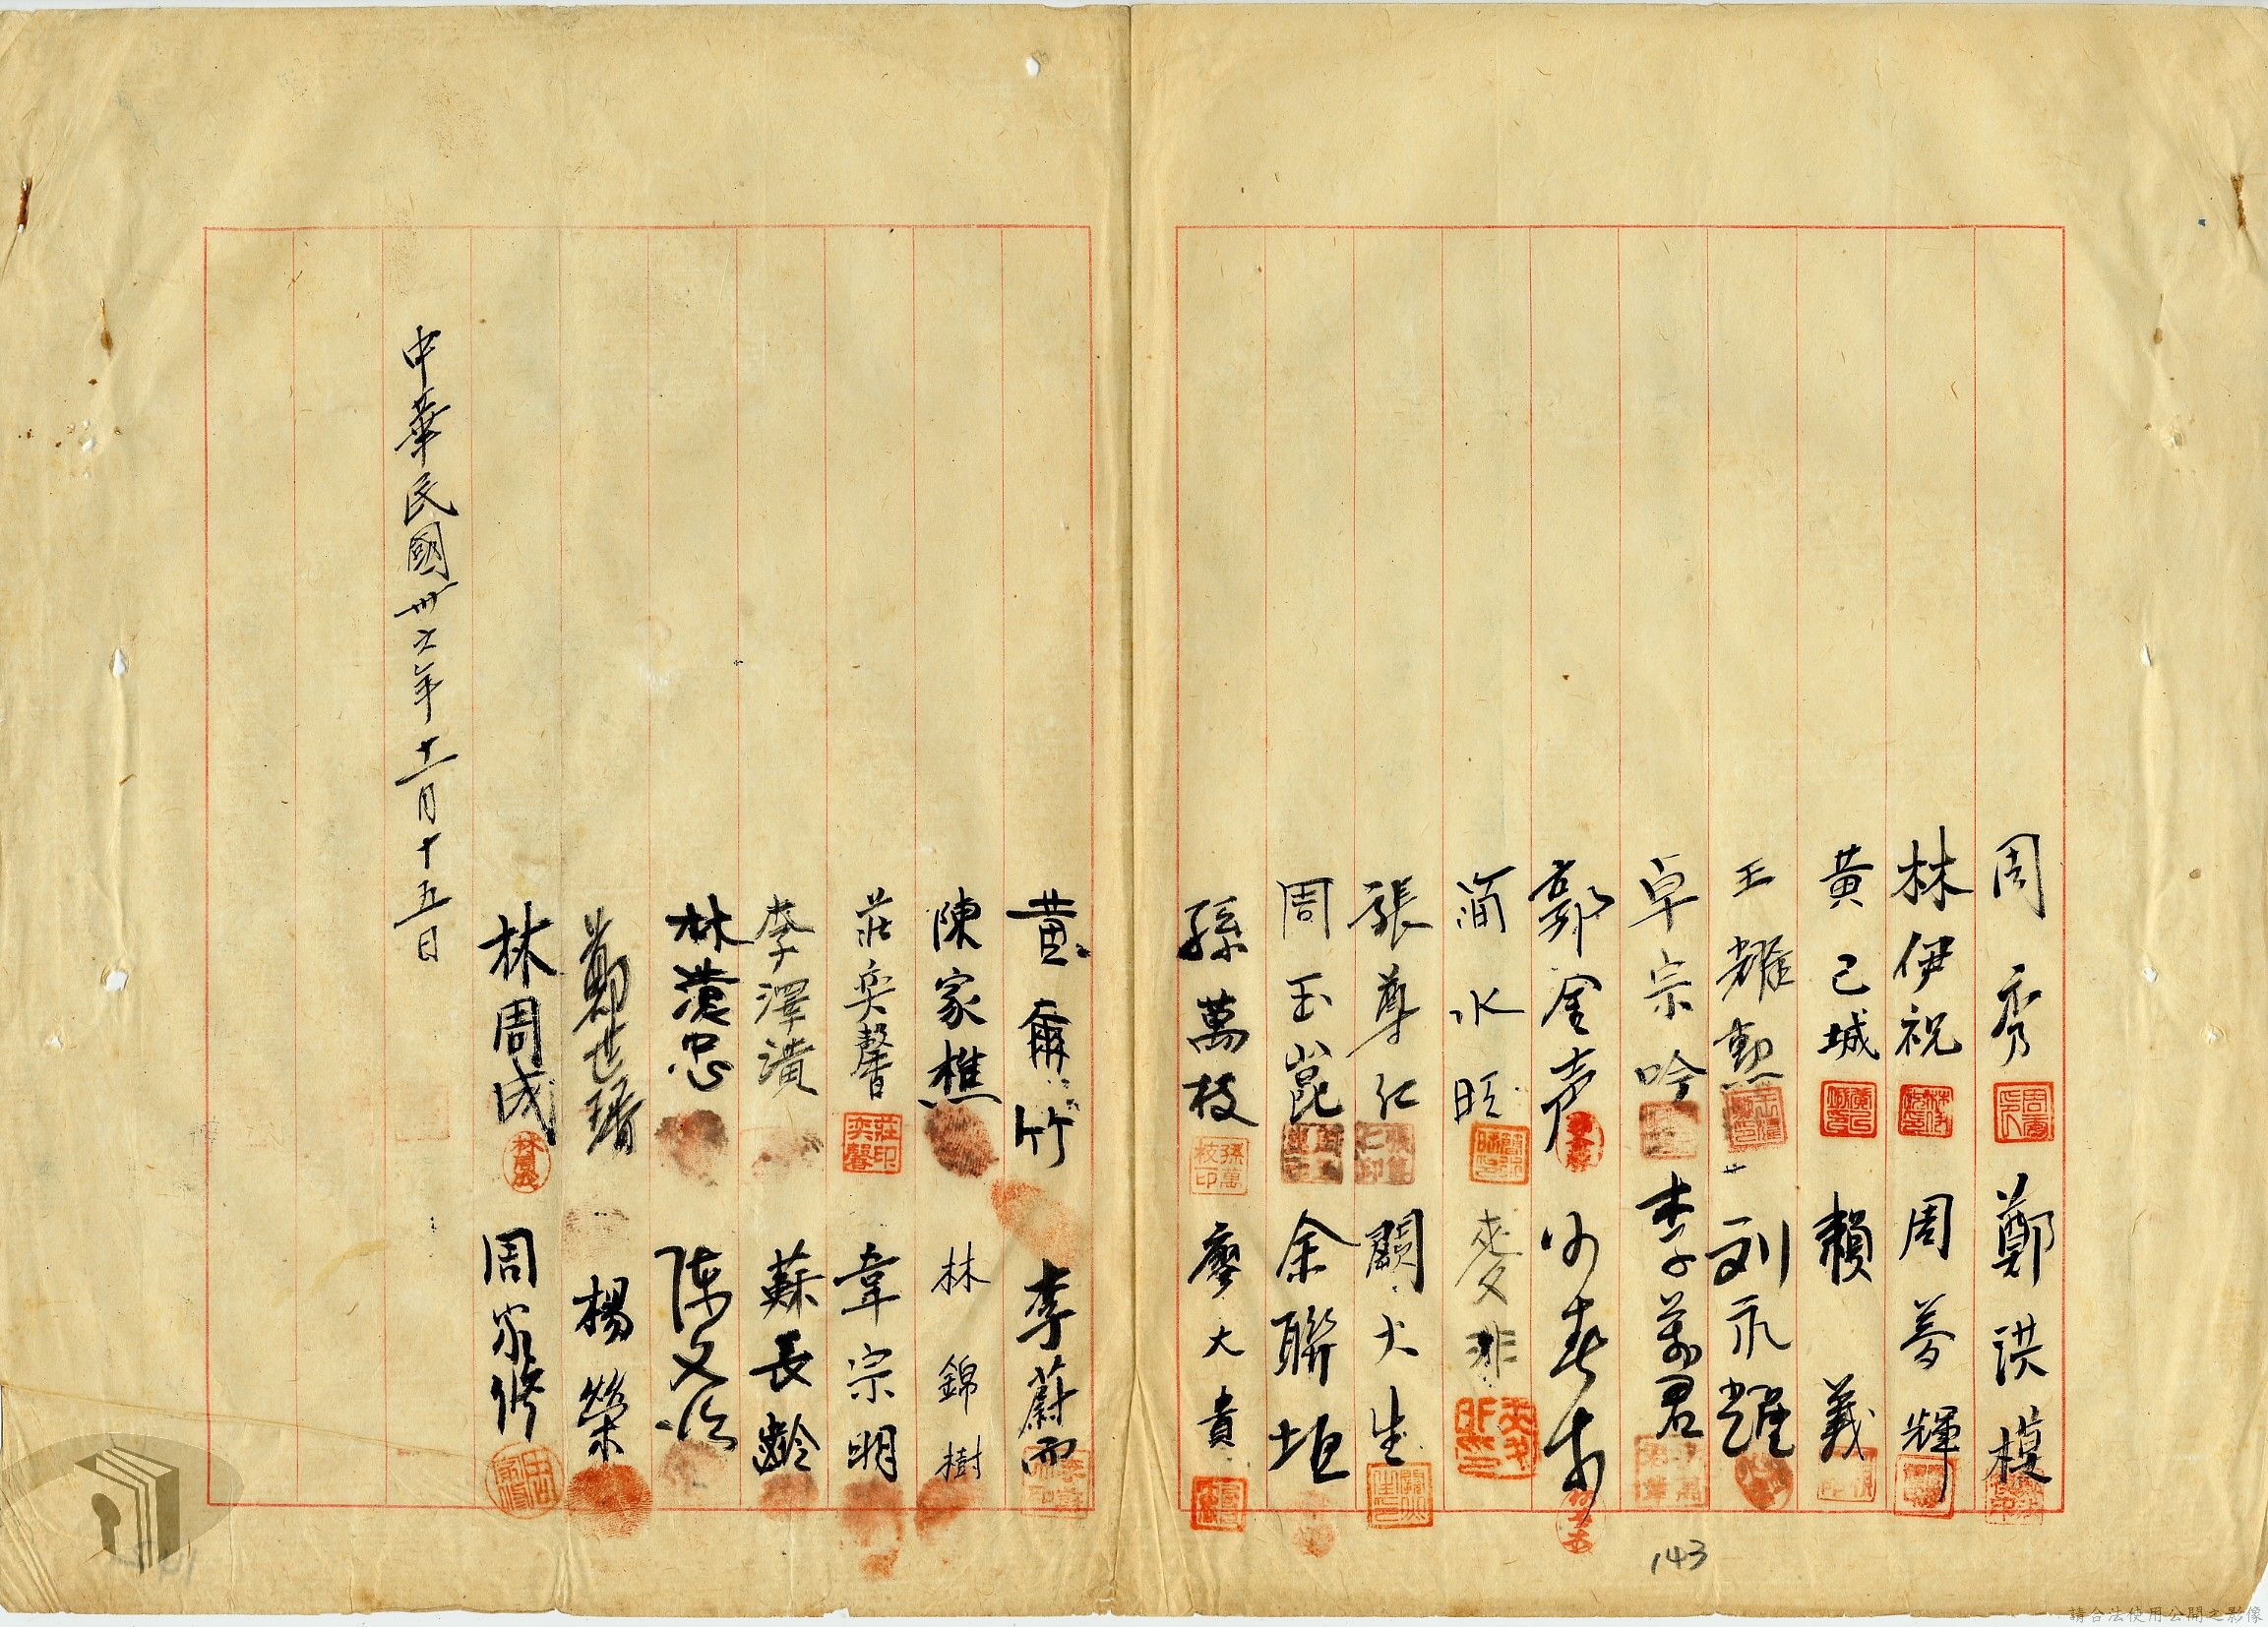 周秀 鄭洪模
林伊祝 周普輝
黃己城 賴義
王耀勲 刘永耀
卓宗吟 李萬君
郭金声
简水旺 麥非
張尊仁 闕火生
周玉崑 余聯垣
孫萬枝 廖大貴
143
黃爾竹 李蔚而
陳家樵 林錦樹
莊奕馨 韋宗明
李澤潢 蘇長齡
林蒗忠 陈文治
鄭世璠 楊榮
林周成 周家修
中華民國卅七年十一月十五日
請合法使用公開之影像